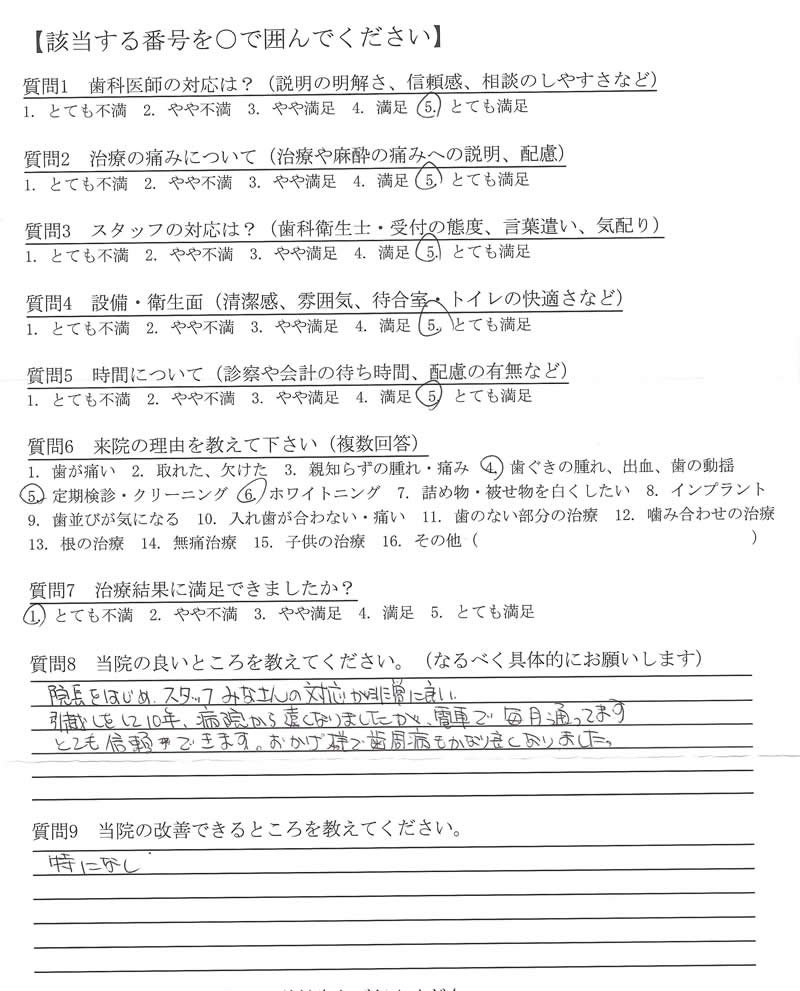 【該当する番号を〇で囲んでください】
質問1　歯科医師の対応は？（説明の明解さ、信頼感、相談のしやすさなど）
1. とても不満　2. やや不満　3. やや満足　4. 満足　5. とても満足
質問2　治療の痛みについて（治療や麻酔の痛みへの説明、配慮）
1. とても不満　2. やや不満　3. やや満足　4. 満足　5. とても満足
質問3　スタッフの対応は？（歯科衛生士・受付の態度、言葉遣い、気配り）
1. とても不満　2. やや不満　3. やや満足　4. 満足　5. とても満足
質問4　設備・衛生面（清潔感、雰囲気、待合室・トイレの快適さなど）
1. とても不満　2. やや不満　3. やや満足　4. 満足　5. とても満足
質問5　時間について（診察や会計の待ち時間、配慮の有無など）
1. とても不満　2. やや不満　3. やや満足　4. 満足　5. とても満足
質問6　来院の理由を教えて下さい（複数回答）
1. 歯が痛い　2. 取れた、欠けた　3. 親知らずの腫れ・痛み　4. 歯ぐきの腫れ、出血、歯の動揺
5. 定期検診・クリーニング　6. ホワイトニング　7. 詰め物・被せ物を白くしたい　8. インプラント
9. 歯並びが気になる　10. 入れ歯が合わない・痛い　11. 歯のない部分の治療　12. 噛み合わせの治療
13. 根の治療　14. 無痛治療　15. 子供の治療　16. その他（　　　　　　　　　　）
質問7　治療結果に満足できましたか？
1. とても不満　2. やや不満　3. やや満足　4. 満足　5. とても満足
質問8　当院の良いところを教えてください。（なるべく具体的にお願いします）
院長をはじめ、スタッフみなさんの対応が非常に良い。
引越しをして10年、病院から遠くなりましたが、電車で毎月通ってます
とても信頼ができます。おかげ様で歯周病もかなり良くなりました。
質問9　当院の改善できるところを教えてください。
特になし